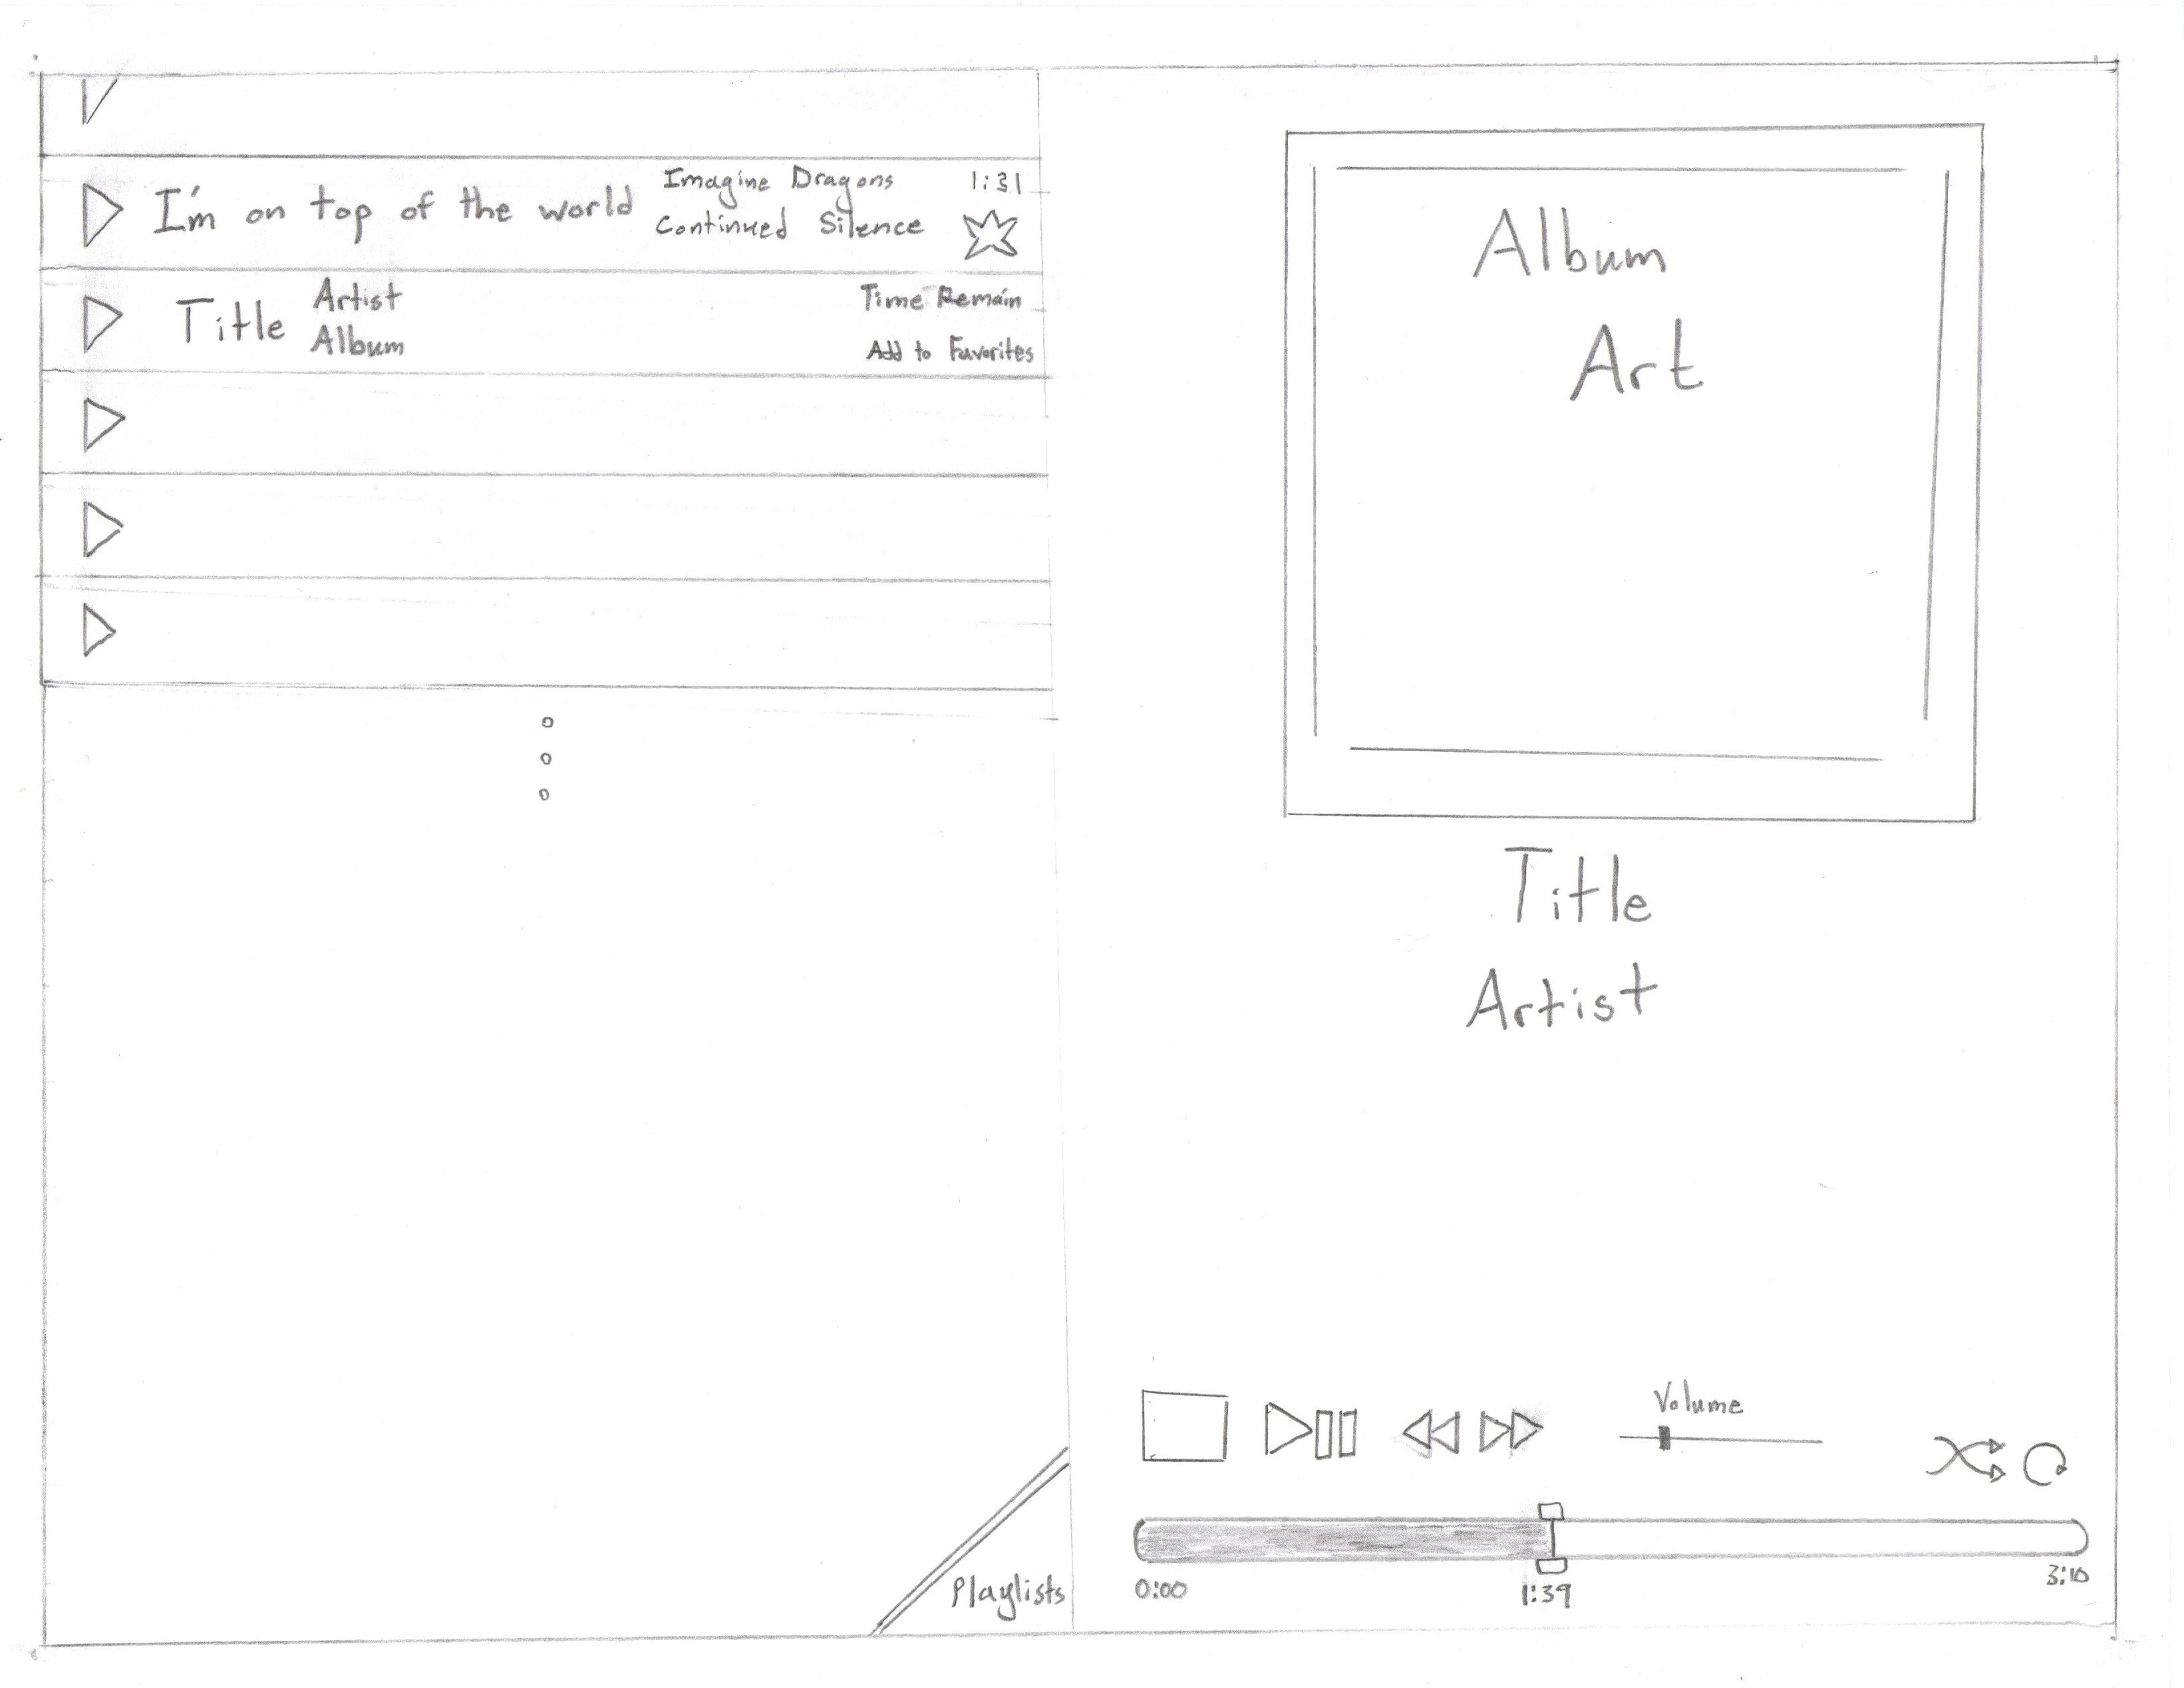 I'm on top of the world
Imagine Dragons
Continued Silence
1:31
Title
Artist
Album
Time Remain
Add to Favorites
Album
Art
Title
Artist
Volume
0:00
1:39
3:10
Playlists